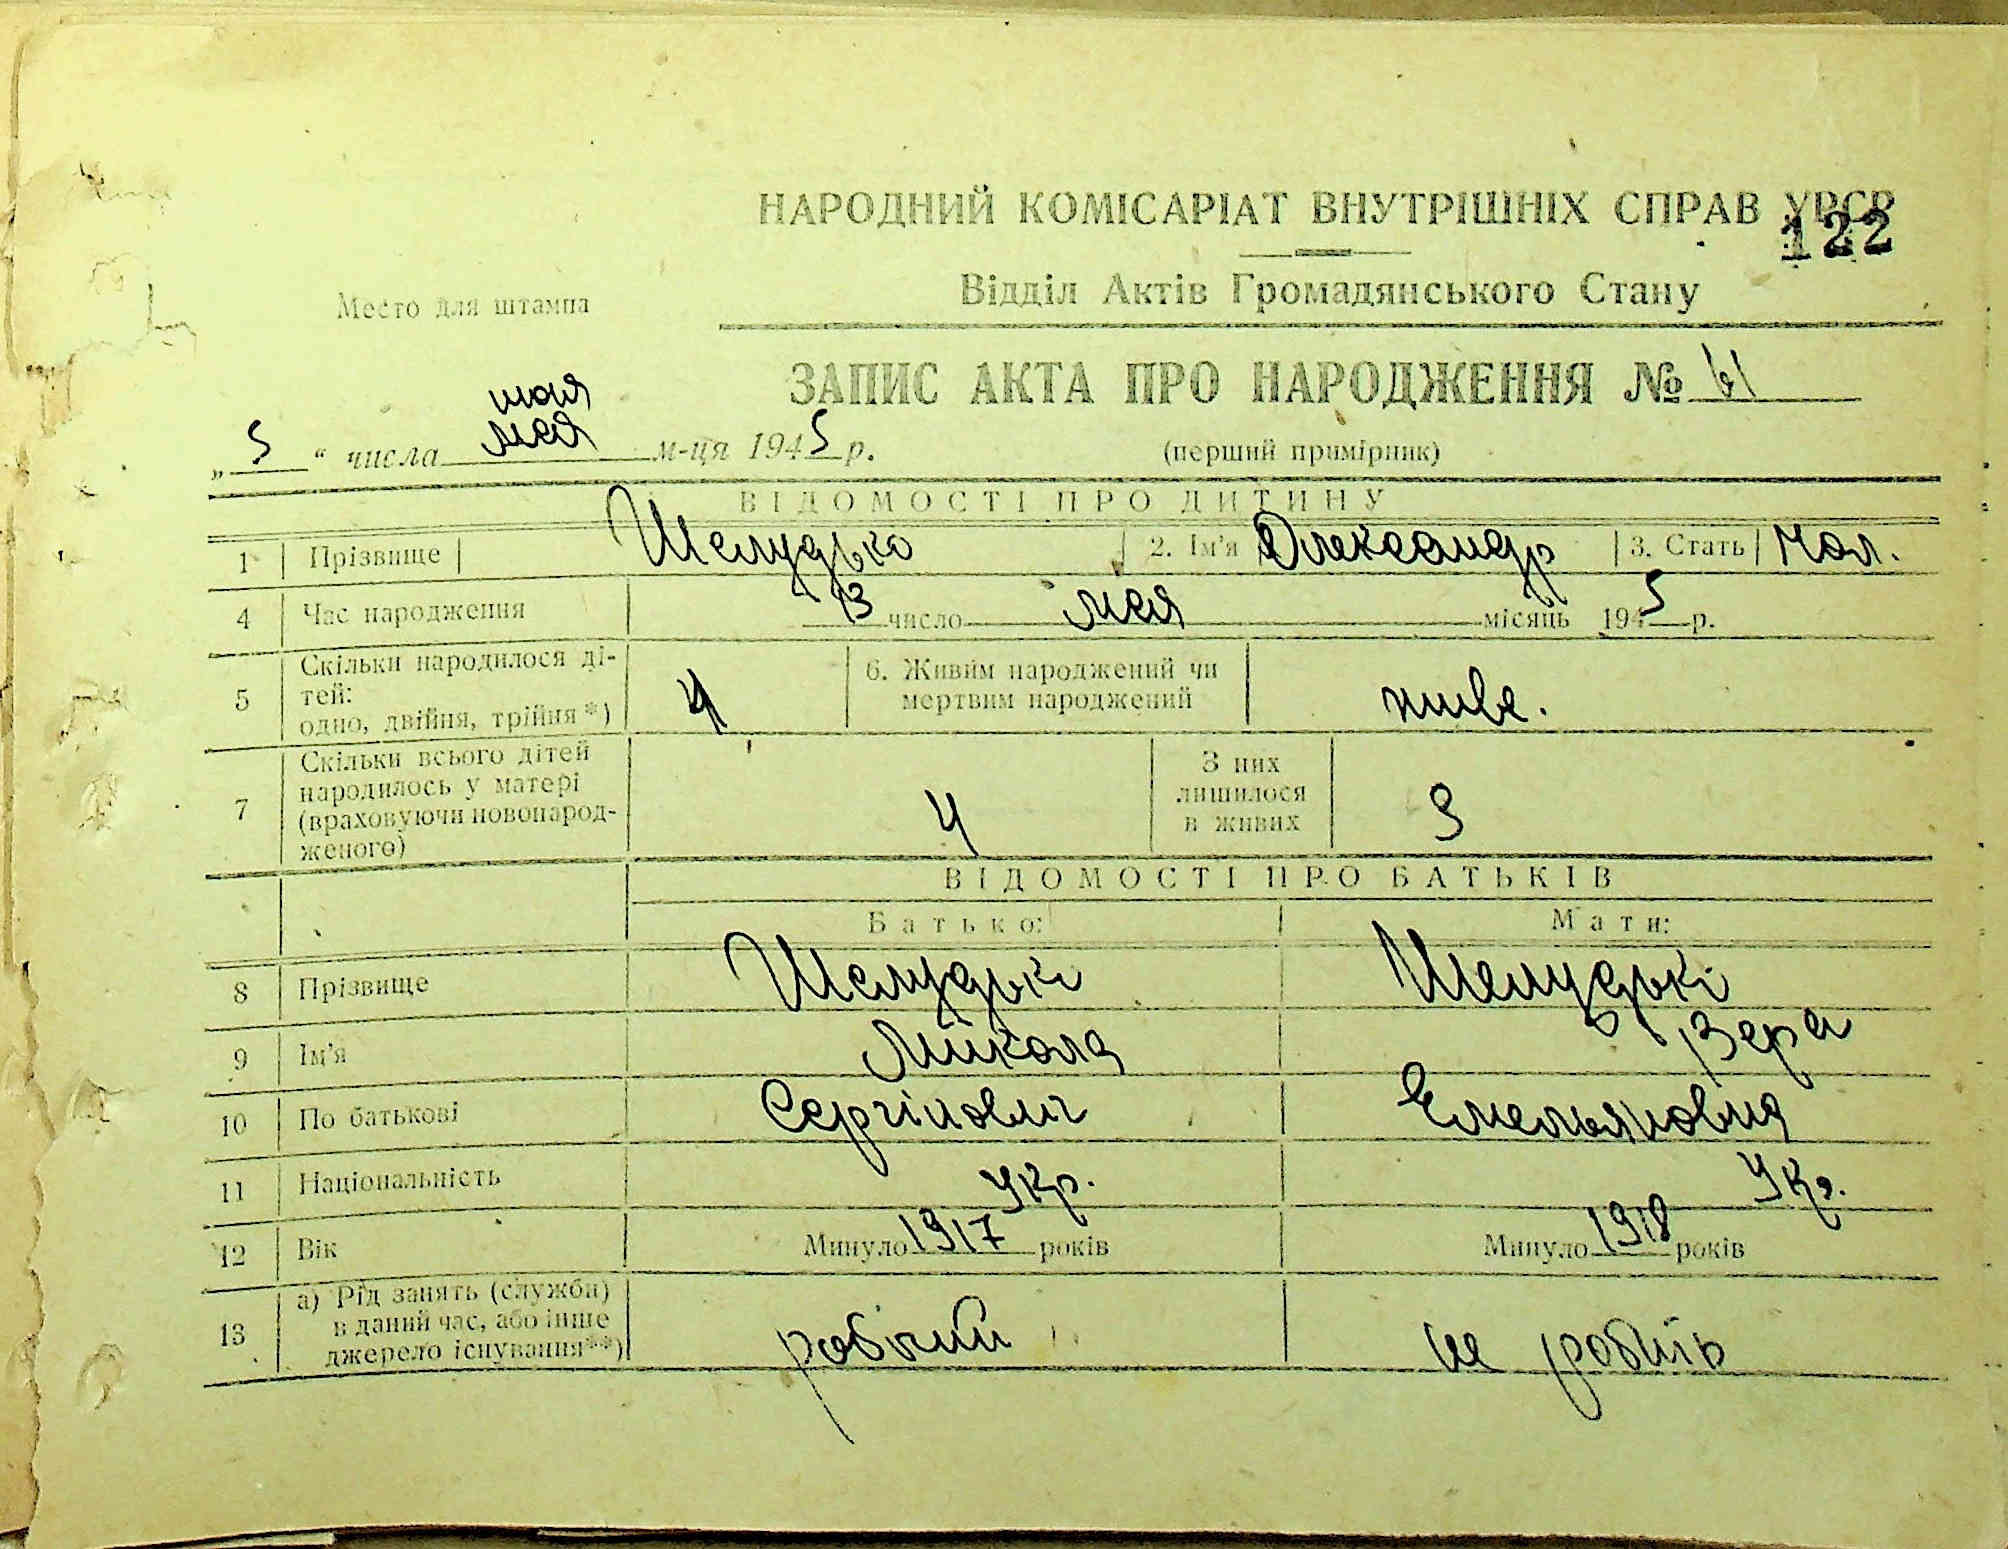 НАРОДНИЙ КОМІСАРІАТ ВНУТРІШНІХ СПРАВ УРСР
122
Відділ Актів Громадянського Стану
Место для штампа
ЗАПИС АКТА ПРО НАРОДЖЕННЯ №
мая
„ 5 “ числа мая м-ця 1945 р.
(перший примірник)
ВІДОМОСТІ ПРО ДИТИНУ
1 Прізвище Шелудько 2. Ім'я Олександр 3. Стать Чол.
4 Час народження 13 число мая місяць 1945 р.
5 Скільки народилося ді-
тей:
одно, двійня, трійня *) 4
6. Живим народжений чи
мертвим народжений живе.
7 Скільки всього дітей
народилось у матері
(враховуючи новонарод-
женого) 4
З них
лишилося
в живих 3
ВІДОМОСТІ ПРО БАТЬКІВ
Батько: Мати:
8 Прізвище Шелудькі Шелудькі
9 Ім'я Микола Вера
10 По батькові Сергійович Емельяновна
11 Національність Укр. Укр.
12 Вік Минуло 1917 років Минуло 1918 років
13 а) Рід занять (служби)
в даний час, або інше
джерело існування**) робочий не робить